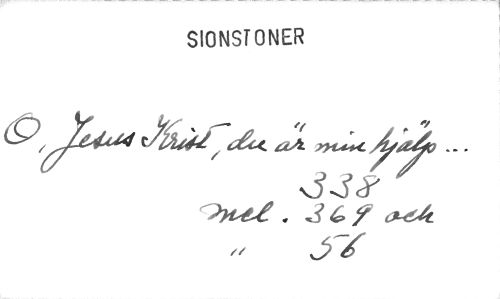 SIONSTONER
O, Jesus Krist, du är min hjälp...
338
mel. 369 och
" 56